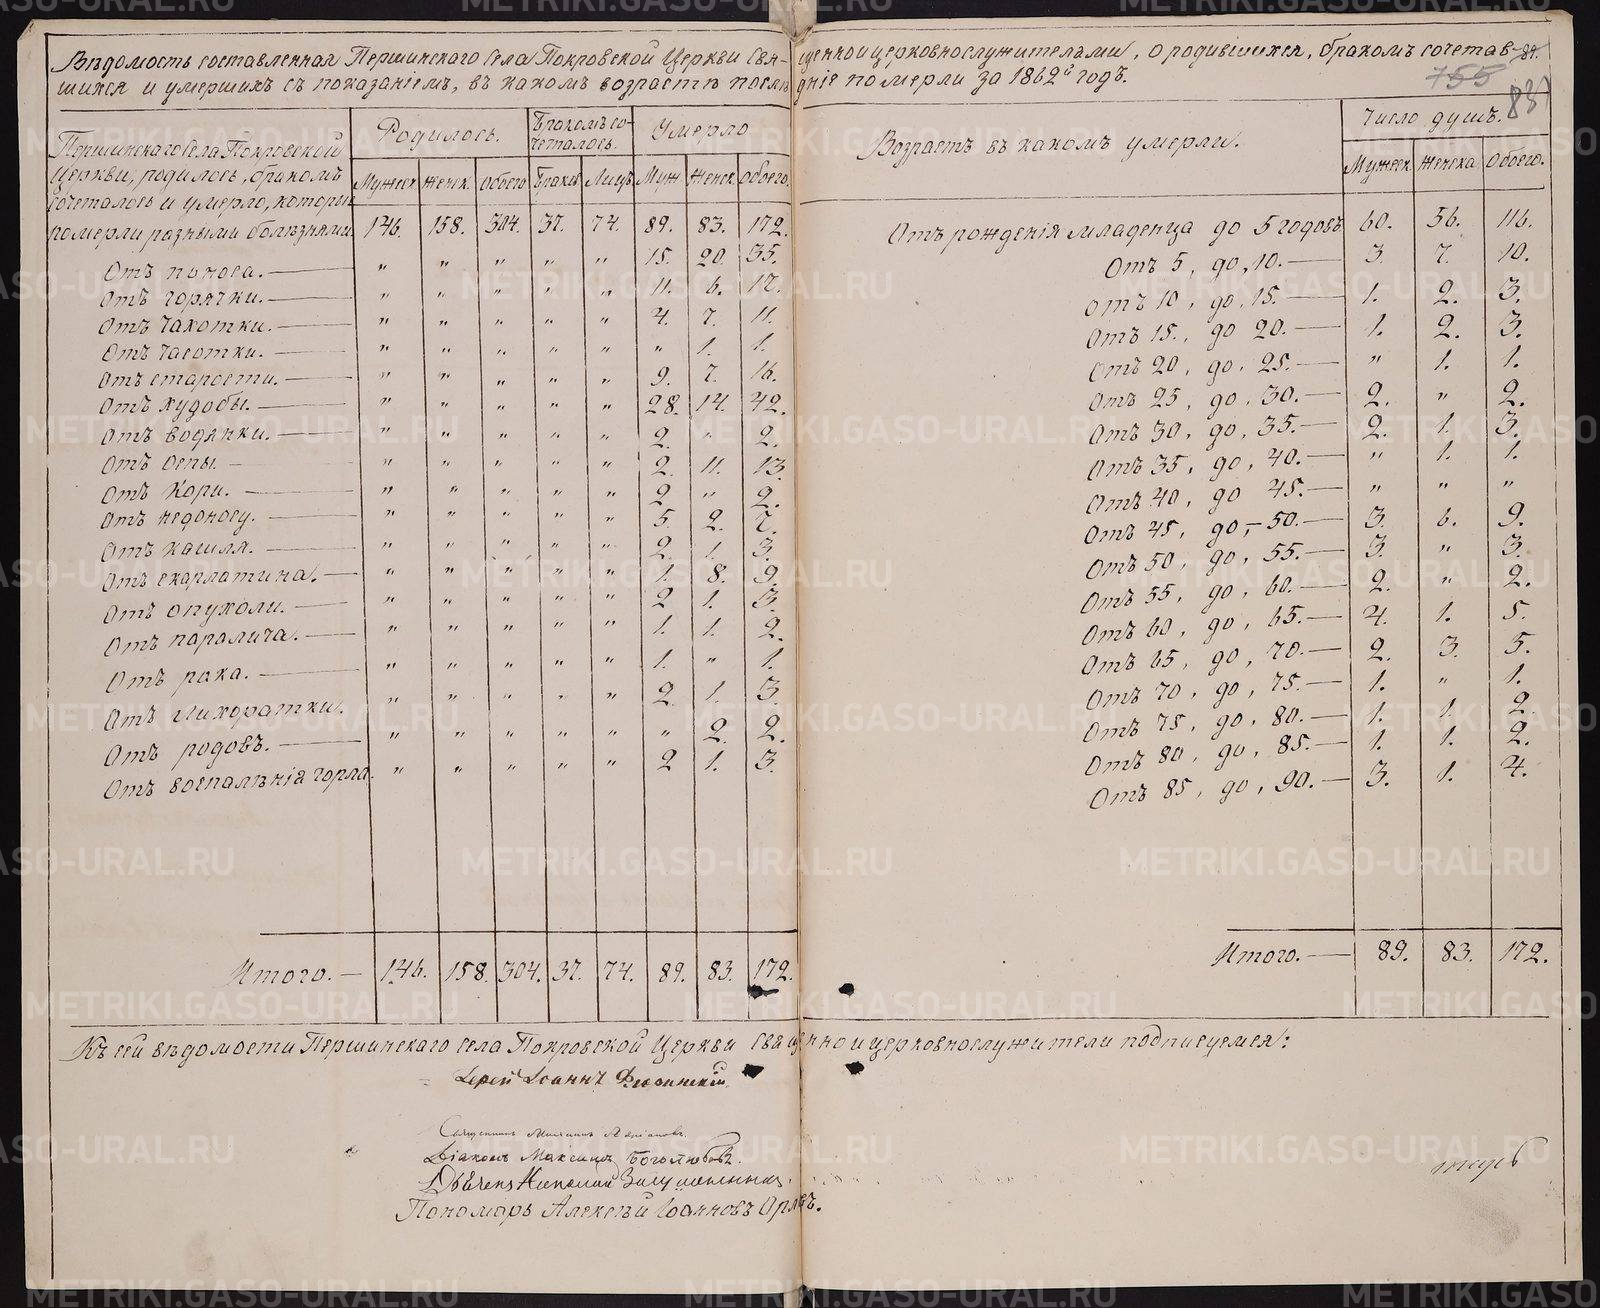 Вѣдомость составленная Першинскаго Села Покровской Церкви Священноицерковнослужителами, о родившихся, бракомъ сочетав-
шихся и умершихъ съ показаніемъ, въ какомъ возрастѣ послѣдніе померли за 1862й годъ.
755
837
Першинскаго Села Покровской Церкви, родилось, бракомъ сочеталось и умерло, которые померли разными болѣзнями.
Родилось. Бракомъ сочеталось. Умерло
Мужеск. Женск. Обоего Браковъ Лицъ Муж Женск. Обоего.
146. 158. 304. 37. 74. 89. 83. 172.
Отъ поноса. — „ „ „ „ „ 15. 20. 35.
Отъ горячки. — „ „ „ „ „ 11. 6. 17.
Отъ чахотки. — „ „ „ „ „ 4. 7. 11.
Отъ часотки. — „ „ „ „ „ „ 1. 1.
Отъ старости. — „ „ „ „ „ 9. 7. 16.
Отъ худобы. — „ „ „ „ „ 28. 14. 42.
Отъ водянки. — „ „ „ „ „ 2. „ 2.
Отъ оспы. — „ „ „ „ „ 2. 11. 13.
Отъ кори. — „ „ „ „ „ 2. „ 2.
Отъ недоносу. — „ „ „ „ „ 5. 2. 7.
Отъ кашля. — „ „ „ „ „ 2. 1. 3.
Отъ скарлатина. — „ „ „ „ „ 1. 8. 9.
Отъ опухоли. — „ „ „ „ „ 2 1. 3.
Отъ паралича. — „ „ „ „ „ 1. 1. 2.
Отъ рака. — „ „ „ „ „ 1. „ 1.
Отъ лихоратки. „ „ „ „ „ 2. 1. 3.
Отъ родовъ. — „ „ „ „ „ „ 2. 2.
Отъ воспалѣнія горла. „ „ „ „ „ 2 1. 3.
Итого. — 146. 158. 304. 37. 74. 89. 83. 172.
Возрастъ въ какомъ умерли.
Число душъ.
Мужеск. Женска. Обоего.
Отъ рожденія младенца до 5 годовъ 60. 56. 116.
Отъ 5, до, 10. — 3. 7. 10.
Отъ 10, до, 15. — 1. 2. 3.
Отъ 15., до 20. — 1. 2. 3.
Отъ 20, до, 25. — „ 1. 1.
Отъ 25, до, 30. — 2. „ 2.
Отъ 30, до, 35. — 2. 1. 3.
Отъ 35, до, 40. — „ 1. 1.
Отъ 40, до 45. — „ „ „
Отъ 45, до, — 50. — 3. 6. 9.
Отъ 50, до, 55. — 3. „ 3.
Отъ 55, до, 60. — 2. „ 2.
Отъ 60, до, 65. — 4. 1. 5.
Отъ 65, до, 70. — 2. 3. 5.
Отъ 70, до, 75. — 1. „ 1.
Отъ 75, до, 80. — 1. 1. 2.
Отъ 80, до, 85. — 1. 1. 2.
Отъ 85, до, 90. — 3. 1. 4.
Итого. — 89. 83. 172.
Къ сей вѣдомости Першинскаго села Покровской Церкви священноицерковнослужители подписуемся:
Іерей Іоаннъ
Священникъ
Діаконъ Максимъ Боголюбовъ.
Дьячекъ Николай
Пономарь Алексѣй Іоанновъ Орловъ.
METRIKI.GASO-URAL.RU